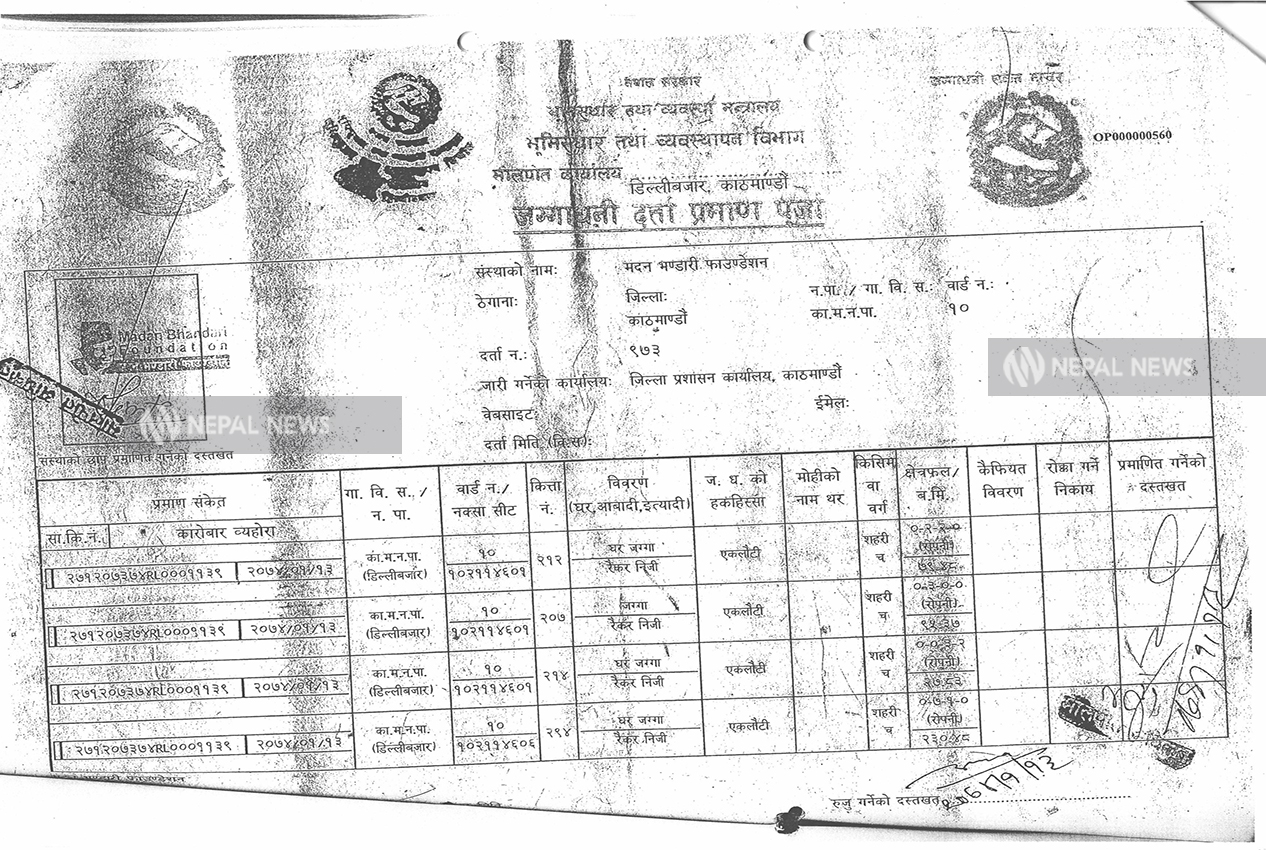 नेपाल सरकार
भूमिसुधार तथा व्यवस्था मन्त्रालय
भूमिसुधार तथा व्यवस्थापन विभाग
मालपोत कार्यालय डिल्लीबजार, काठमाण्डौं
जग्गाधनी दर्ता प्रमाण पूर्जा
OP000000560
संस्थाको नाम: मदन भण्डारी फाउण्डेशन
ठेगाना: जिल्ला: न.पा./ गा. वि. स.: वार्ड न.:
काठमाण्डौं का.म.न.पा. १०
दर्ता न.: ९७३
जारी गर्नेको कार्यालय: जिल्ला प्रशासन कार्यालय, काठमाण्डौं
वेबसाइट: ईमेल:
दर्ता मिति (वि.स):
Madan Bhandari
Foundation
NEPAL NEWS
NEPAL NEWS
संस्थाको छाप प्रमाणित गर्नेको दस्तखत
प्रमाण संकेत
सा.कि.नं. कारोबार व्यहोरा
गा. वि. स., /
न. पा.
वार्ड न./
नक्सा सीट
कित्ता
नं.
विवरण
(घर,आबादी,इत्यादी)
ज. ध. को
हकहिस्सा
मोहीको
नाम थर
किसिम
वा
वर्ग
क्षेत्रफल/
ब.मि.
कैफियत
विवरण
रोक्का गर्ने
निकाय
प्रमाणित गर्नेको
दस्तखत
२७१२०७३७४RL०००११३९ २०७४/०१/१३ का.म.न.पा. (डिल्लीबजार) १० १०२११४६०१ २१२ घर जग्गा रैकर निजी एकलौटी शहरी च ०-२-२-० (रोपनी) ७९.४८
२७१२०७३७४RL०००११३९ २०७४/०१/१३ का.म.न.पा. (डिल्लीबजार) १० १०२११४६०१ २०७ जग्गा रैकर निजी एकलौटी शहरी च ०-३-०-० (रोपनी) ९५.३७
२७१२०७३७४RL०००११३९ २०७४/०१/१३ का.म.न.पा. (डिल्लीबजार) १० १०२११४६०१ २१४ घर जग्गा रैकर निजी एकलौटी शहरी च (रोपनी)
२७१२०७३७४RL०००११३९ २०७४/०१/१३ का.म.न.पा. (डिल्लीबजार) १० १०२११४६०६ २९४ घर जग्गा रैकर निजी एकलौटी शहरी च ०-७-१-० (रोपनी) २३०.४८
रुजु गर्नेको दस्तखत